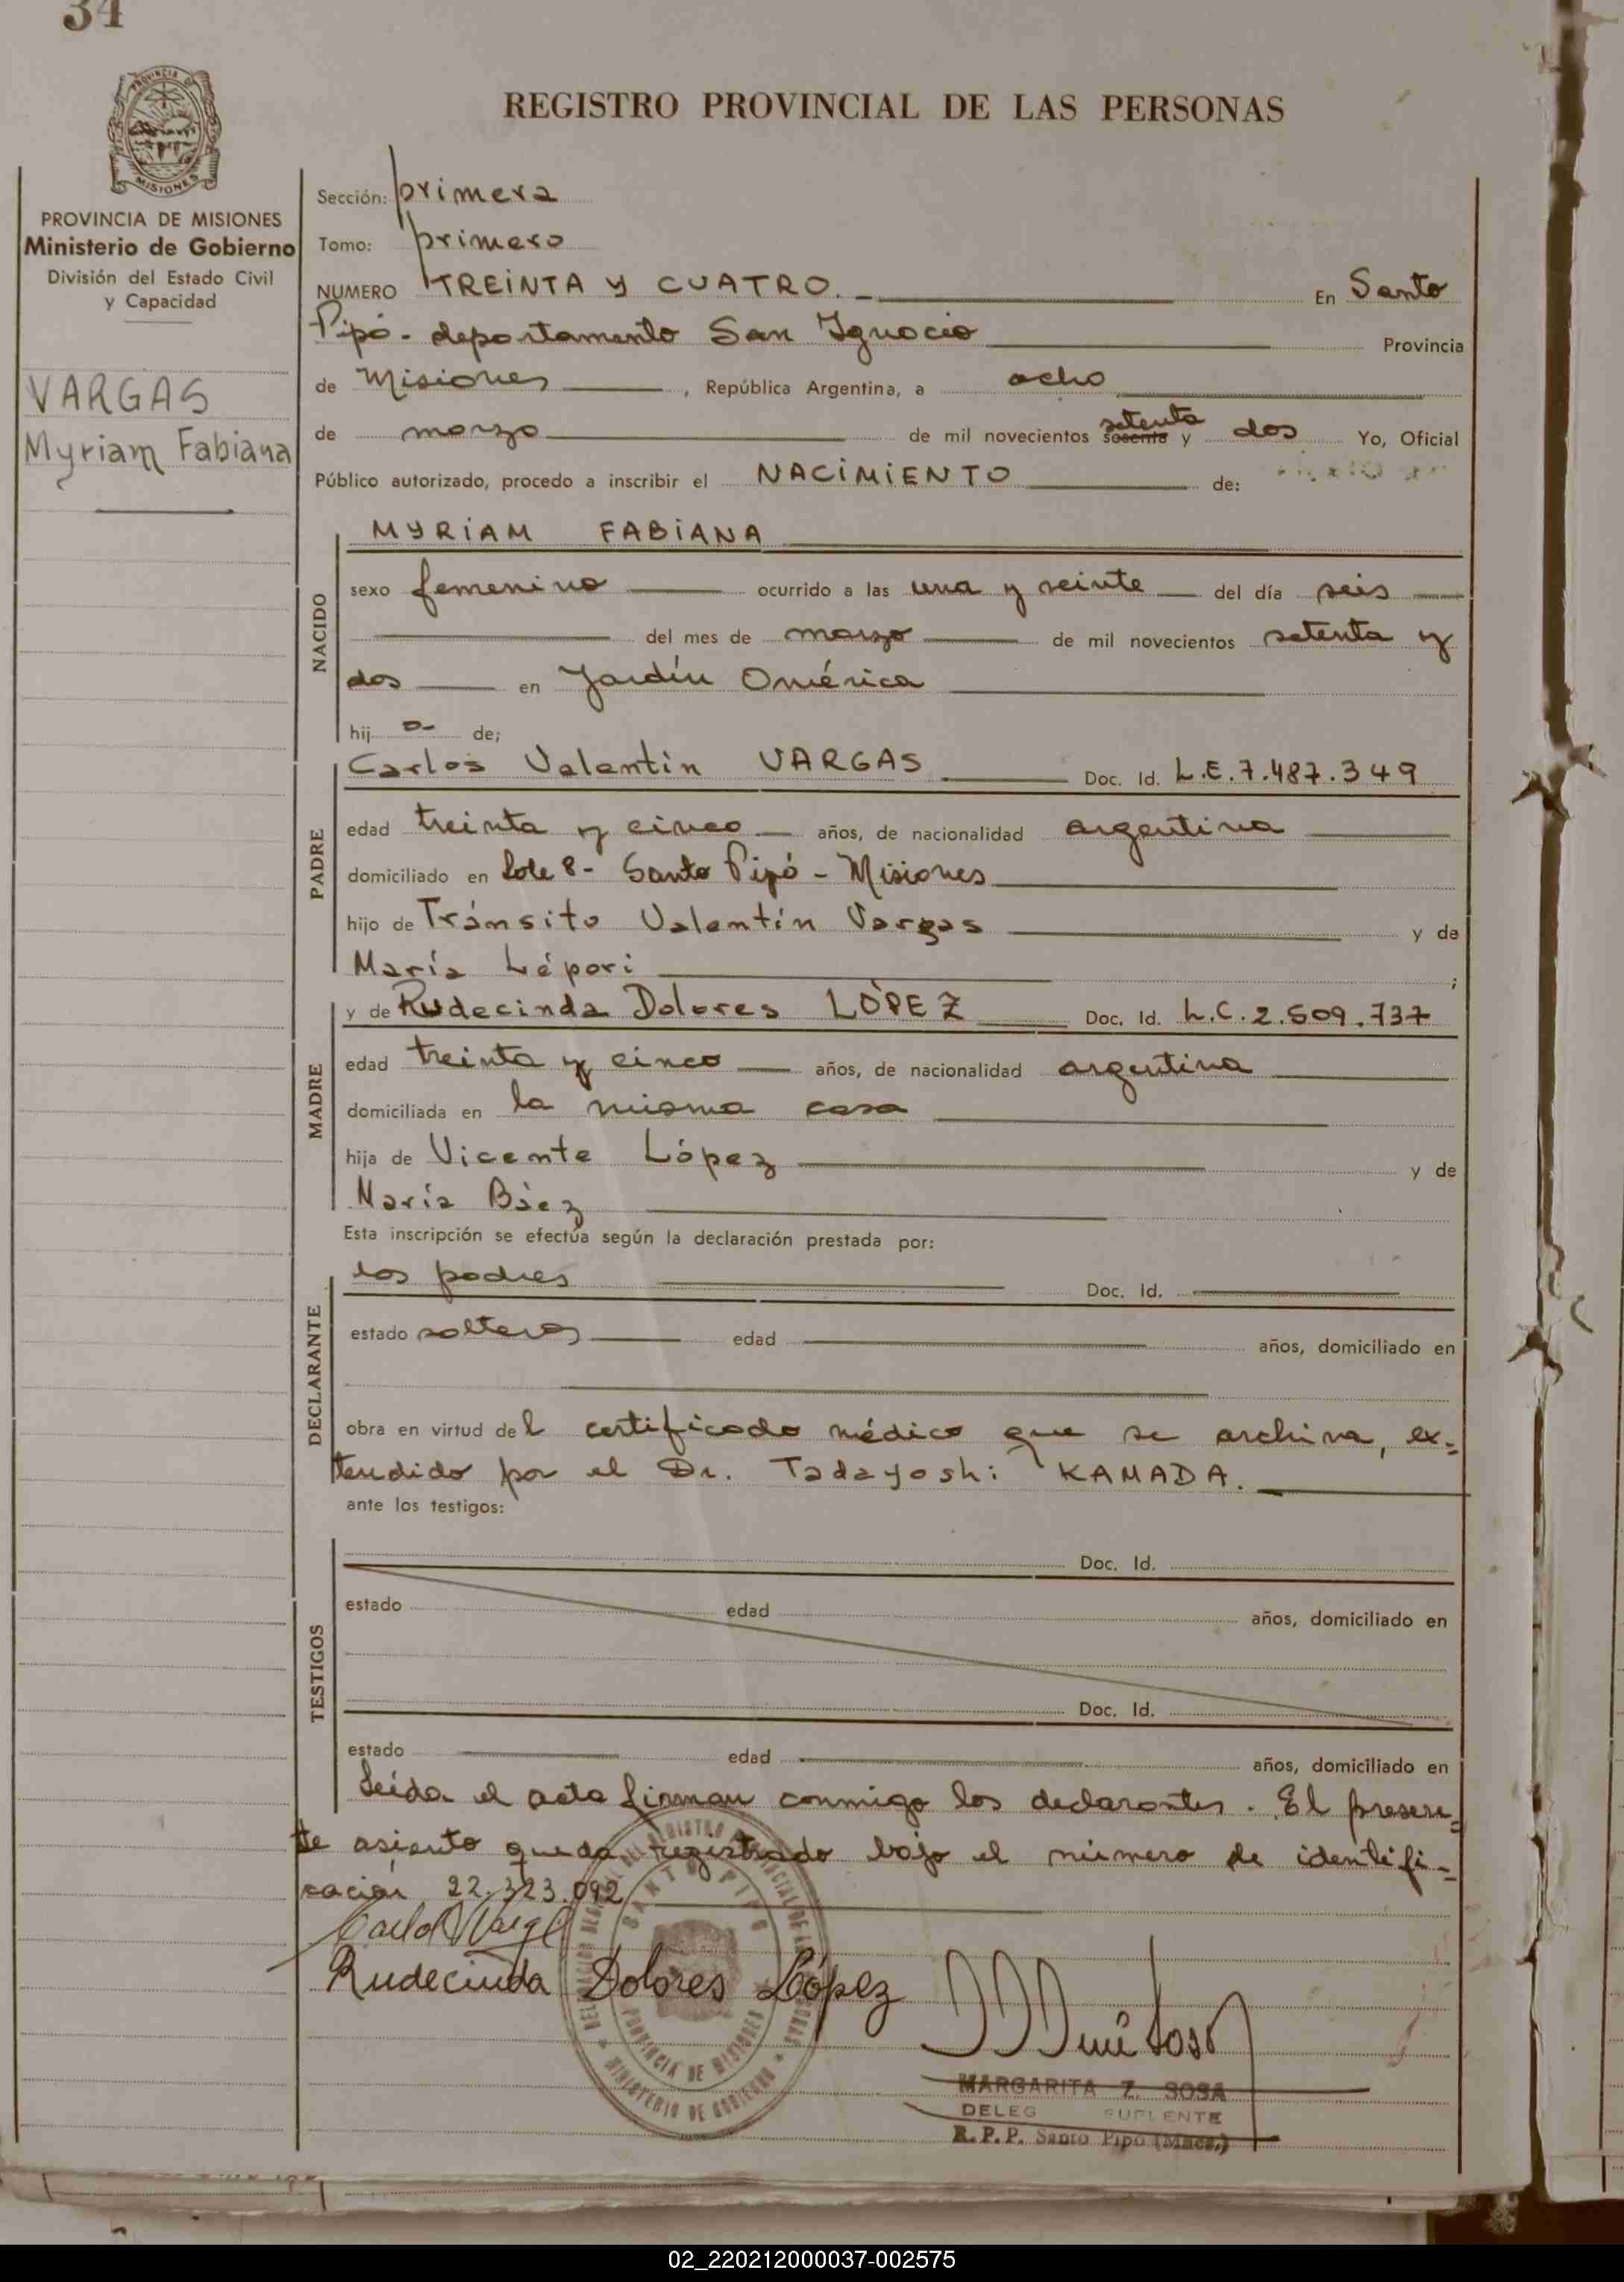 34
PROVINCIA DE MISIONES
REGISTRO PROVINCIAL DE LAS PERSONAS
PROVINCIA DE MISIONES
Ministerio de Gobierno
División del Estado Civil
y Capacidad
VARGAS
Myriam Fabiana
Sección: primera
Tomo: primero
NUMERO TREINTA Y CUATRO. En Santo
Pipó - departamento San Ignacio Provincia
de Misiones, República Argentina, a ocho
de marzo de mil novecientos sesenta setenta y dos Yo, Oficial
Público autorizado, procedo a inscribir el NACIMIENTO de:
NACIDO
MYRIAM FABIANA
sexo femenino ocurrido a las una y veinte del día seis
del mes de marzo de mil novecientos setenta y
dos en Jardín América
hij a de;
PADRE
Carlos Valentín VARGAS Doc. Id. L.E. 7.487.349
edad treinta y cinco años, de nacionalidad argentina
domiciliado en Lote 8 - Santo Pipó - Misiones
hijo de Tránsito Valentín Vargas y de
María Lépori ;
MADRE
y de Rudecinda Dolores LÓPEZ Doc. Id. L.C. 2.509.737
edad treinta y cinco años, de nacionalidad argentina
domiciliada en la misma casa
hija de Vicente López y de
María Báez
Esta inscripción se efectúa según la declaración prestada por:
DECLARANTE
los padres Doc. Id.
estado solteros edad años, domiciliado en
obra en virtud del certificado médico que se archiva, ex-
tendido por el Dr. Tadayoshi KAMADA.
ante los testigos:
TESTIGOS
Doc. Id.
estado edad años, domiciliado en
Doc. Id.
estado edad años, domiciliado en
Leída el acta firman conmigo los declarantes. El presen-
te asiento queda registrado bajo el número de identifi-
cación 22.323.092
Carlos Vargas
Rudecinda Dolores López
SANTO PIPO
PROVINCIA DE MISIONES
MINISTERIO DE GOBIERNO
MARGARITA Z. SOSA
DELEG SUPLENTE
R.P.P. Santo Pipó (Mnes.)
02_220212000037-002575